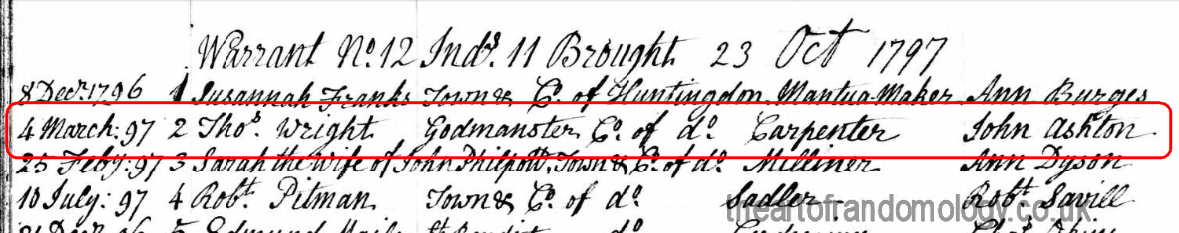 Warrant No. 12 Inds. 11 Brought 23 Oct 1797
8 Decr. 1796 1 Susannah Franks Town & Co. of Huntingdon Mantua Maker Ann Burges
4 March: 97 2 Thos. Wright Godmanster Co. of do. Carpenter John Ashton
25 Feby: 97 3 Sarah the Wife of John Philpott Town & Co. of do. Milliner Ann Dyson
10 July: 97 4 Robt. Pitman Town & Co. of do. Sadler Robt. Savill
theartofrandomology.co.uk
5 Edmund do.